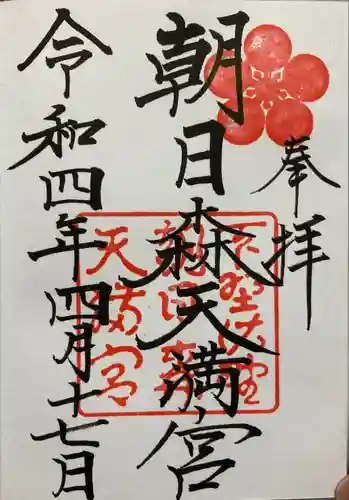 奉拝
朝日森天満宮
令和四年四月十七日
天満宮